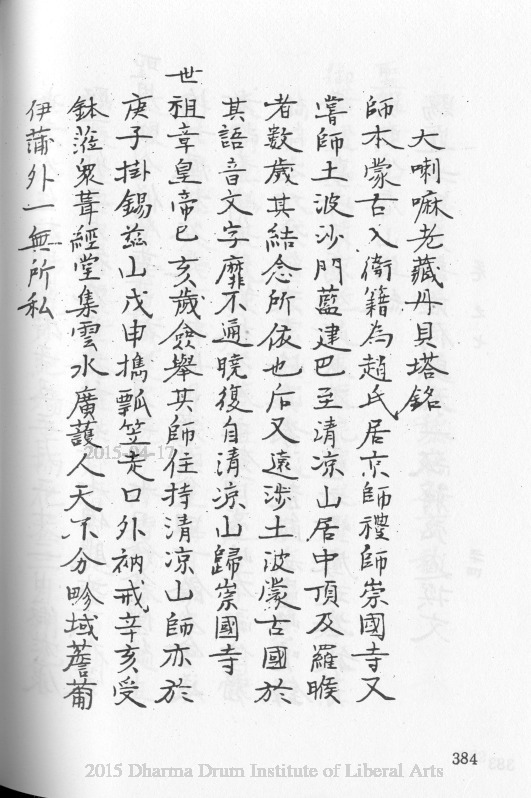 大喇嘛老藏丹貝塔銘
師本蒙古入衞籍為趙氏居京師禮師崇國寺又
嘗師土波沙門藍建巴至清凉山居中頂及羅睺
者數歲其結念所依也后又遠涉土波蒙古國於
其語音文字靡不通曉復自清凉山歸崇國寺
世祖章皇帝己亥歲僉舉其師住持清凉山師亦於
庚子掛錫茲山戊申擕瓢笠走口外衲戒辛亥受
鉢蒞衆葺經堂集雲水廣䕶人天不分畛域薝蔔
伊蒲外一無所私
384
2015-04-17
2015 Dharma Drum Institute of Liberal Arts